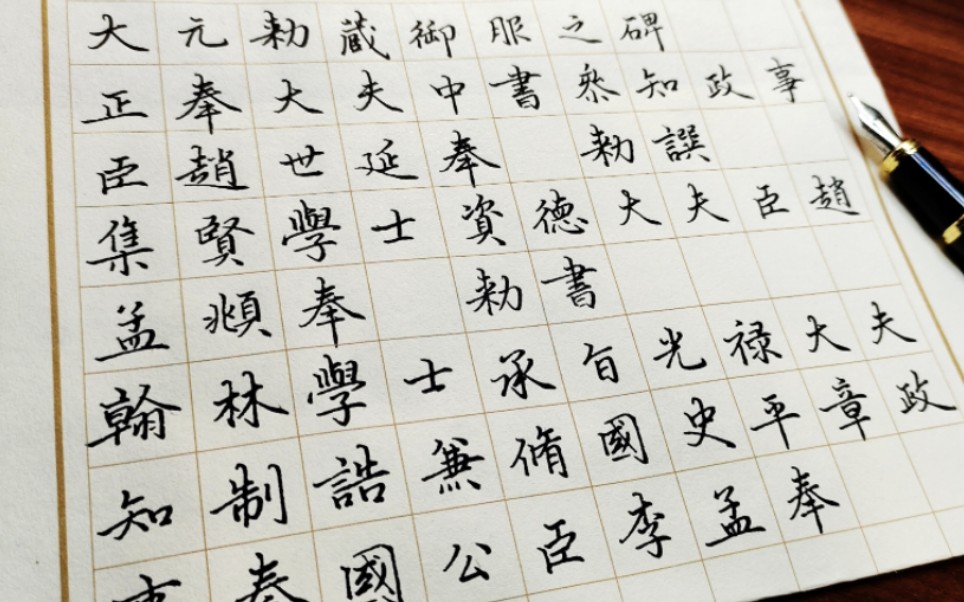 大元勅蔵御服之碑
正奉大夫中書叅知政事
臣趙世延奉 勅譔
集賢學士資德大夫臣趙
孟頫奉 勅書
翰林學士承旨光禄大夫
知制誥兼脩國史平章政
事秦國公臣李孟奉